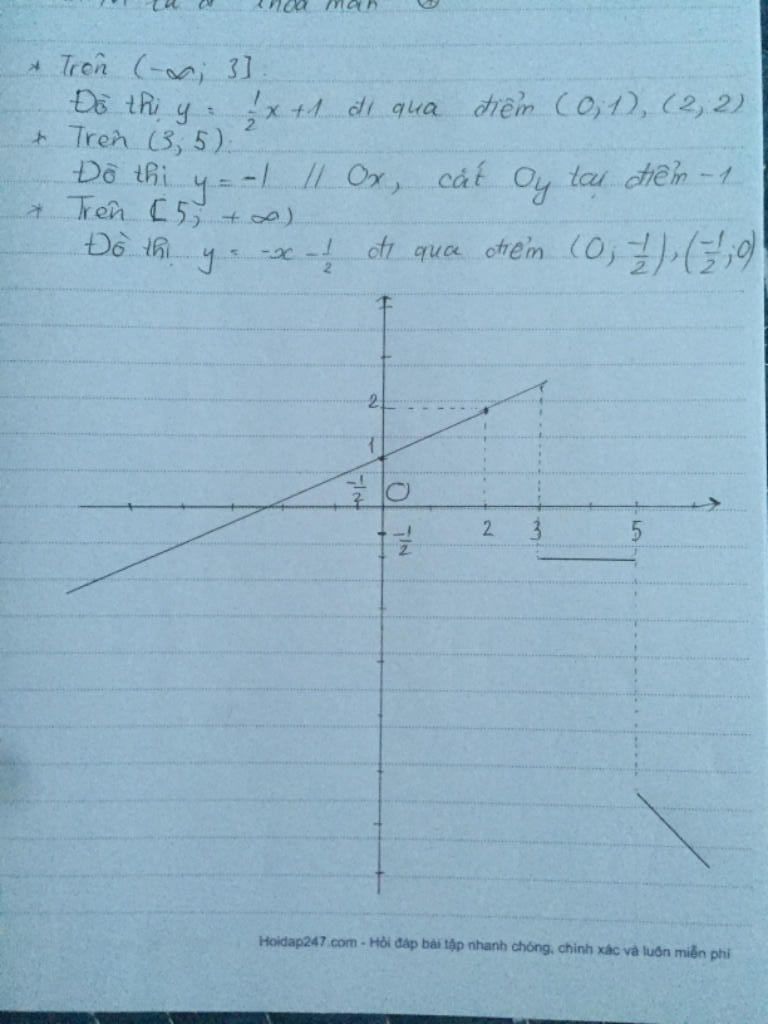 thoả mãn
* Trên (-∞; 3]:
Đồ thị y = 1/2 x + 1 đi qua điểm (0;1), (2, 2)
* Trên (3; 5):
Đồ thị y = -1 // Ox, cắt Oy tại điểm -1
* Trên [5; +∞)
Đồ thị y = -x - 1/2 đi qua điểm (0; -1/2), (-1/2; 0)
2
1
-1/2 O
-1/2 2 3 5
Hoidap247.com - Hỏi đáp bài tập nhanh chóng, chính xác và luôn miễn phí